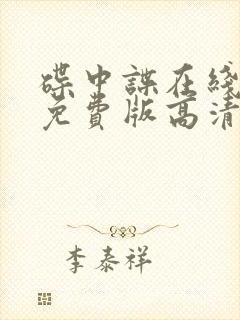 碟中諜在綫
免費版高清
李泰祥